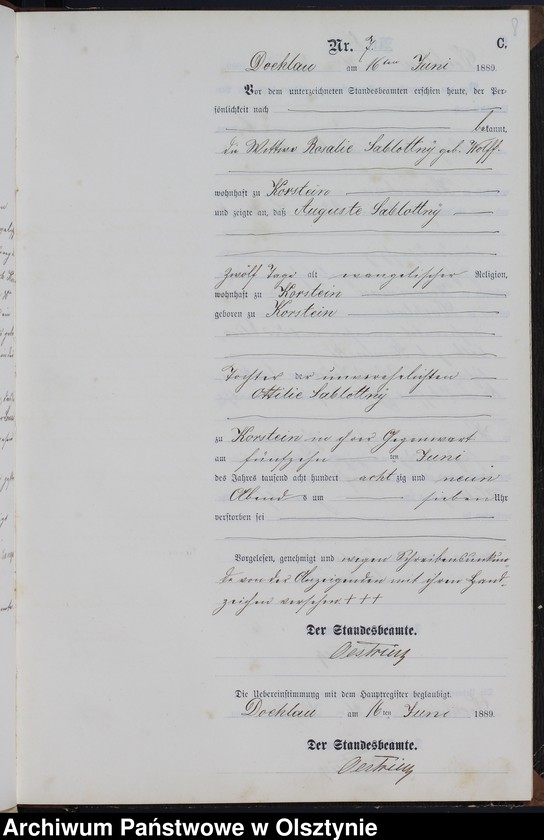 8
Nr. 7. C.
Doehlau am 16ten Juni 1889.
Vor dem unterzeichneten Standesbeamten erschien heute, der Per-
sönlichkeit nach
bekannt,
die Wittwe Rosalie Sablottny geb. Wolff
wohnhaft zu Korstein
und zeigte an, daß Auguste Sablottny
zwölf Tage alt evangelischer Religion,
wohnhaft zu Korstein
geboren zu Korstein
Tochter der unverehelichten
Ottilie Sablottny
zu Korstein in ihrer Gegenwart
am fünfzehnten Juni
des Jahres tausend acht hundert achtzig und neun
Abends um sieben Uhr
verstorben sei
Vorgelesen, genehmigt und wegen Schreibensunkun-
de von der Anzeigenden mit ihrem Hand-
zeichen versehen +++
Der Standesbeamte.
Die Uebereinstimmung mit dem Hauptregister beglaubigt.
Doehlau am 16ten Juni 1889.
Der Standesbeamte.
Archiwum Państwowe w Olsztynie